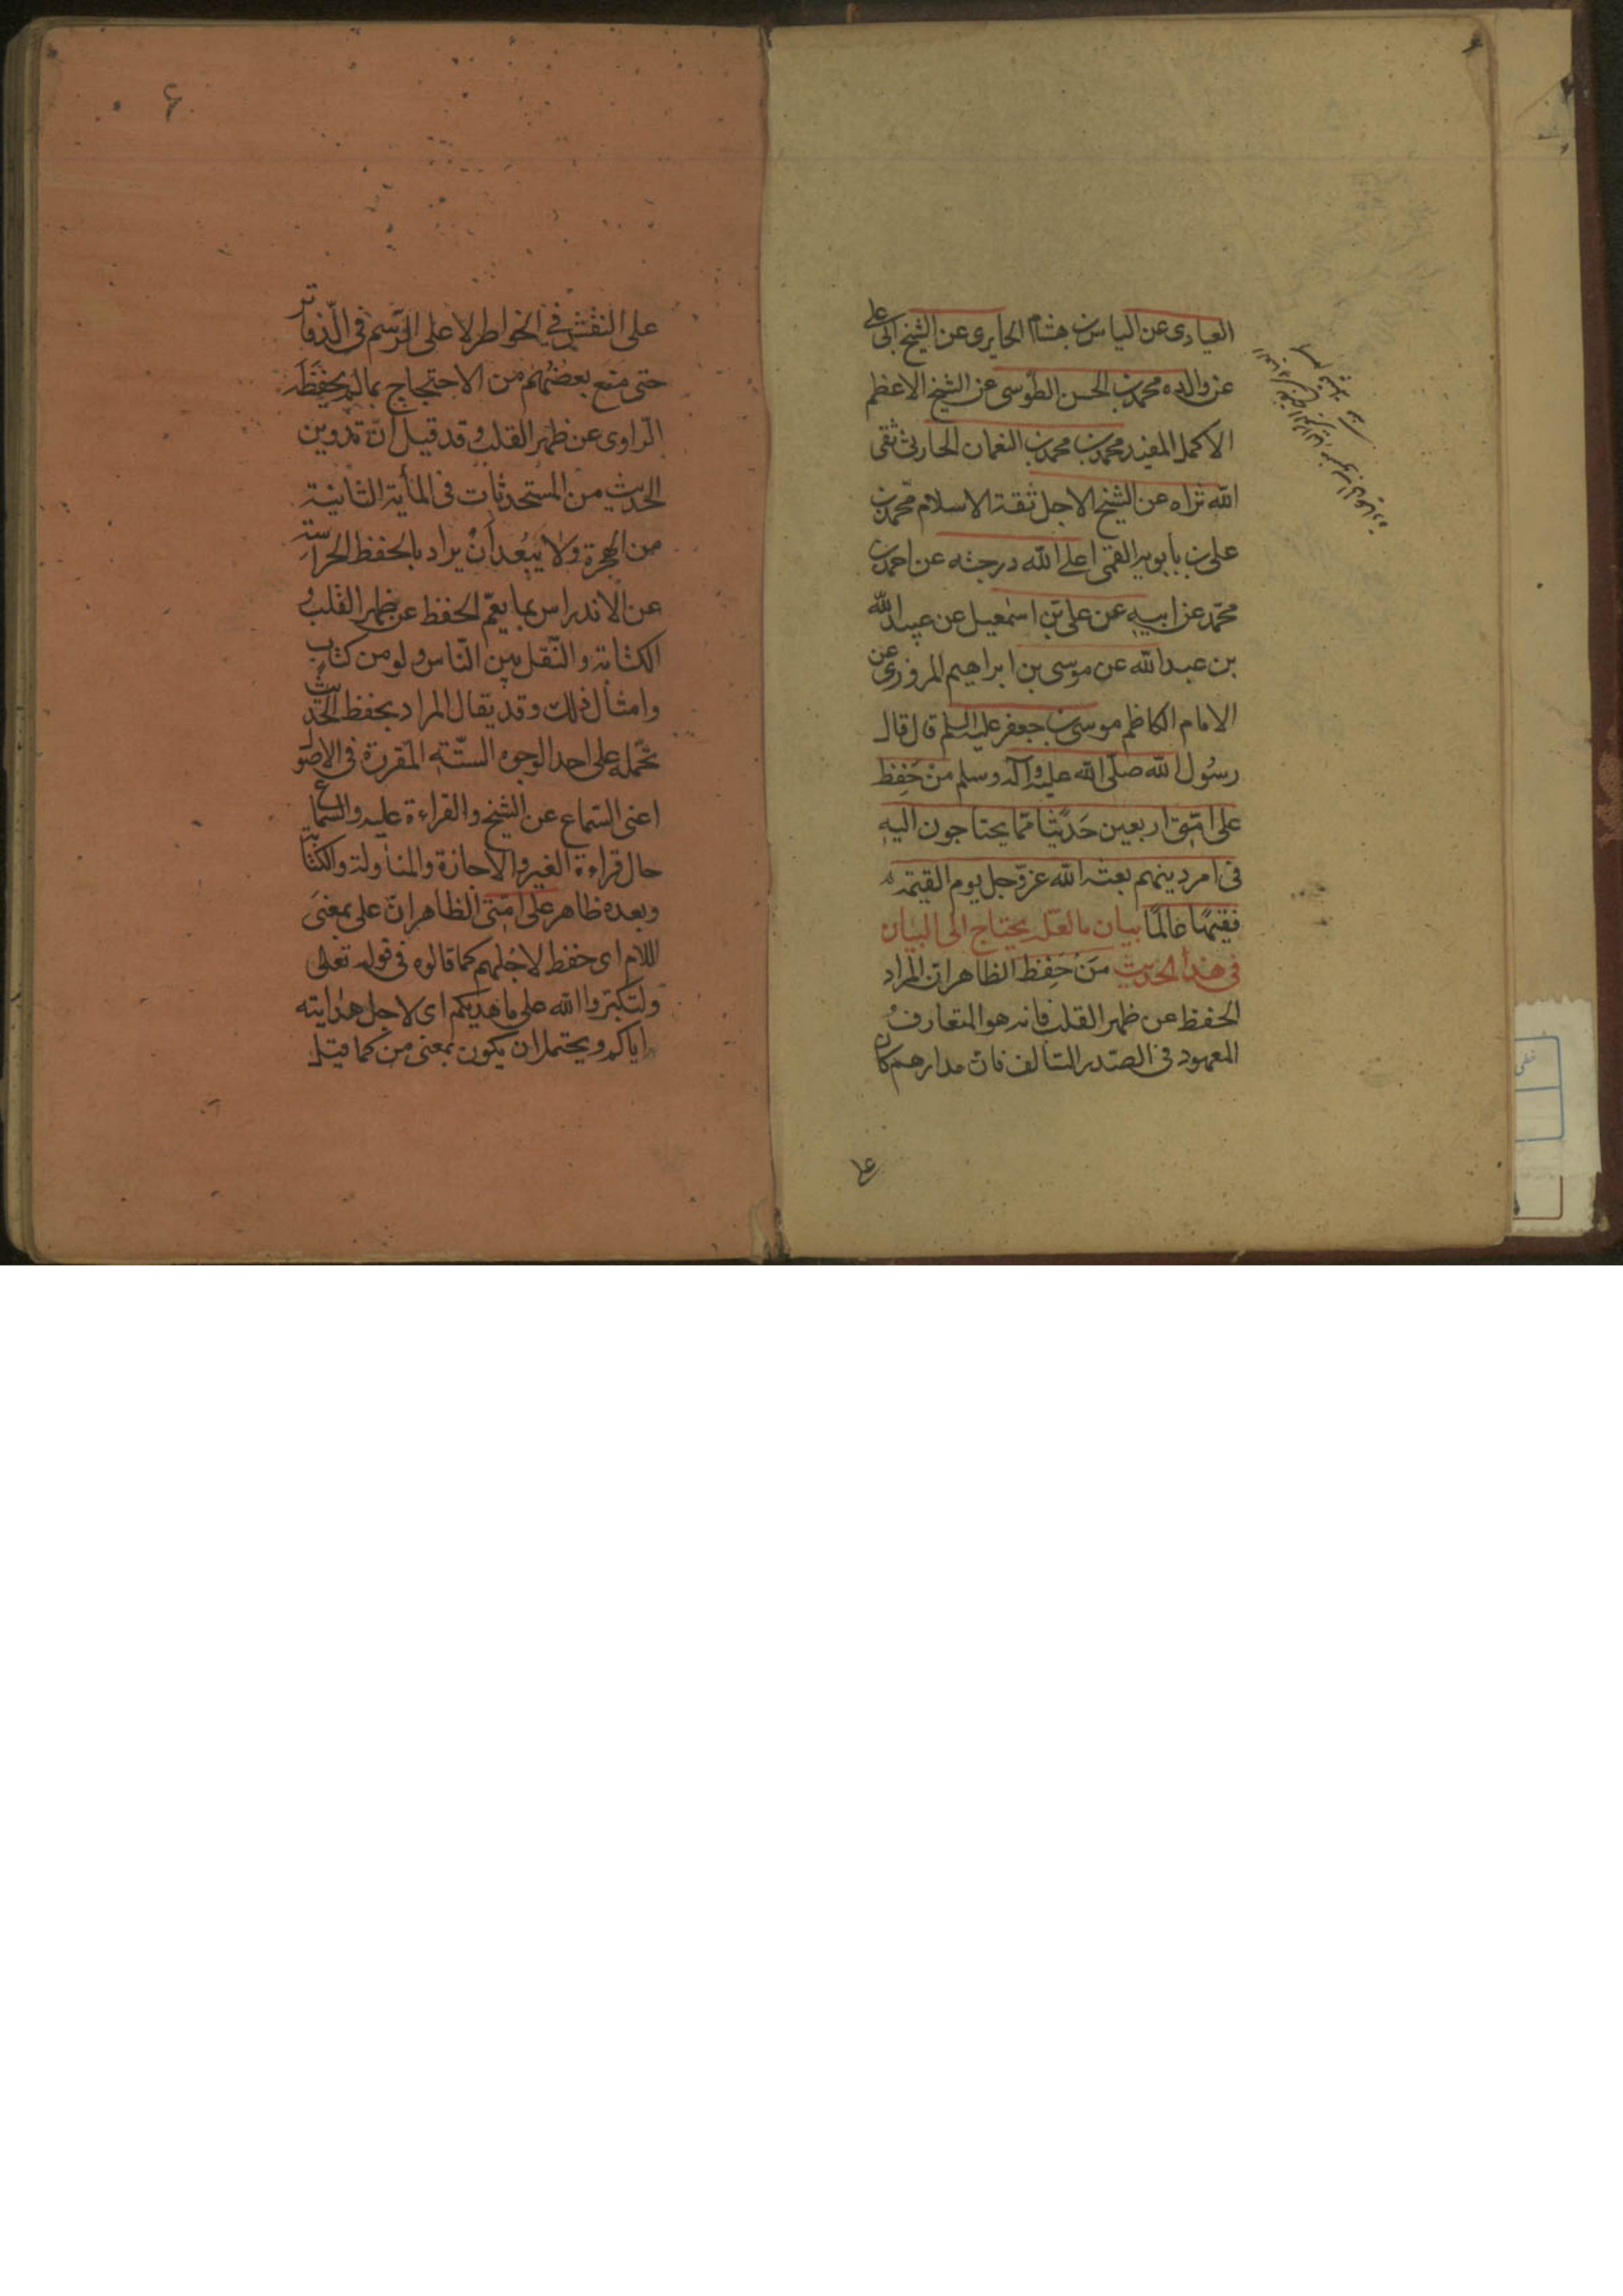 العبادى عن الياس بن هشام الحايرى عن الشيخ ابى على
عن والده محمد بن الحسن الطوسى عن الشيخ الاعظم
الاكمل المفيد محمد بن محمد بن النعمان الحارثى سقى
الله ثراه عن الشيخ الاجل ثقة الاسلام محمد بن
على بن بابويه القمى اعلى الله درجته عن احمد بن
محمد عن ابيه عن على بن اسمعيل عن عبيد الله
بن عبد الله عن موسى بن ابراهيم المروزى عن
الامام الكاظم موسى بن جعفر عليه السلم قال قال
رسول الله صلى الله عليه وآله وسلم من حفظ
على امتى اربعين حديثا مما يحتاجون اليه
فى امر دينهم بعثه الله عز وجل يوم القيمة
فقيها عالما بيان ما لعله يحتاج الى البيان
فى هذا الحديث من حفظ الظاهر ان المراد
الحفظ عن ظهر القلب فانه هو المتعارف
المعهود فى الصدر السالف فان مدارهم كان
على النقش فى الخواطر لا على الرسم فى الدفاتر
حتى منع بعضهم من الاحتجاج بما لم يحفظه
الراوى عن ظهر القلب وقد قيل ان تدوين
الحديث من المستحدثات فى المأية الثانية
من الهجرة ولا يبعد أن يراد بالحفظ الحراسة
عن الاندراس بما يعم الحفظ عن ظهر القلب و
الكتابة والنقل بين الناس ولو من كتاب
وامثال ذلك وقد يقال المراد بحفظ الحديث
تحمله على احد الوجوه الستة المقررة فى الاصول
اعنى السماع عن الشيخ والقراءة عليه والسماع
حال قراءة الغير والاجازة والمناولة والكتابة
وبعده ظاهر على امتى الظاهر ان على بمعنى
اللام اى حفظ لاجلهم كما قالوه فى قوله تعالى
ولتكبروا الله على ما هديكم اى لاجل هدايته
اياكم ويحتمل ان يكون بمعنى من كما قيل